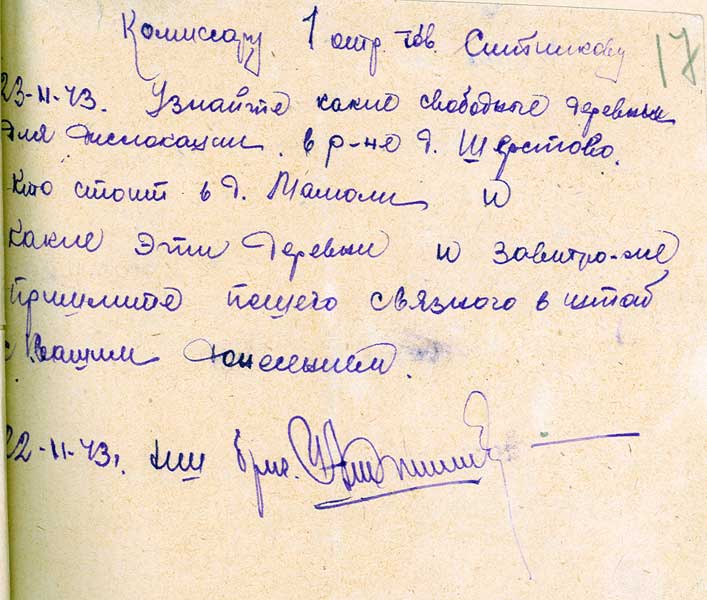 Комиссару 1 отр. тов. Ситникову
17
23-11-43. Узнайте какие свободные деревни
для дислокации в р-не д. Шерстово.
Кто стоит в д. Мамоли и
какие эти деревни и завтра-же
пришлите пешего связного в штаб
с Вашим донесением.
22-11-43г. НШ бриг.